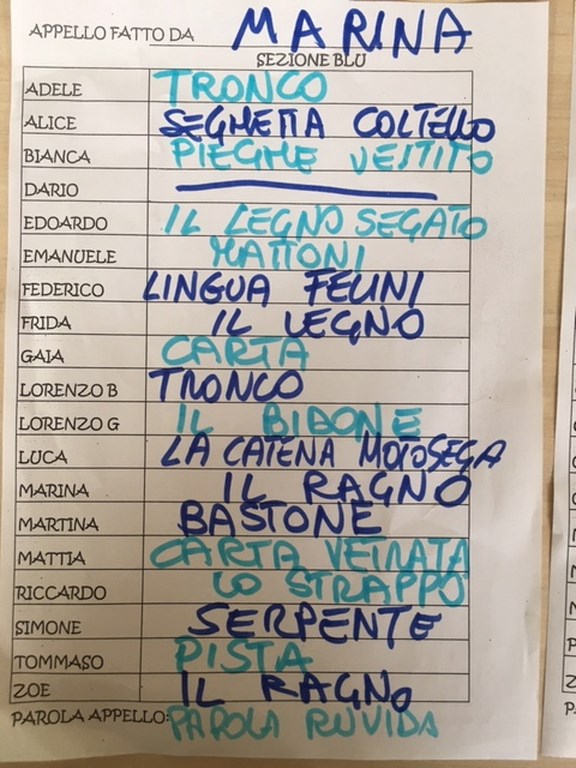 APPELLO FATTO DA MARINA
SEZIONE BLU
ADELE TRONCO
ALICE SEGHETTA COLTELLO
BIANCA PIEGHE VESTITO
DARIO
EDOARDO IL LEGNO SEGATO
EMANUELE MATTONI
FEDERICO LINGUA FELINI
FRIDA IL LEGNO
GAIA CARTA
LORENZO B TRONCO
LORENZO G IL BIDONE
LUCA LA CATENA MOTOSEGA
MARINA IL RAGNO
MARTINA BASTONE
MATTIA CARTA VETRATA
RICCARDO LO STRAPPO
SIMONE SERPENTE
TOMMASO PISTA
ZOE IL RAGNO
PAROLA APPELLO: PAROLA RUVIDA